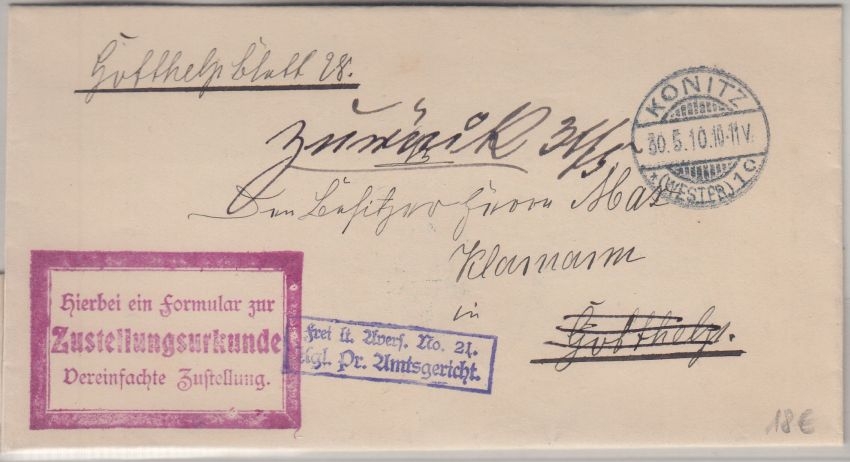 Gotthelp Blatt 28.
KONITZ
30.5.10.10-11V.
*(WESTPR.)1c
Zurück 31/5
Den Besitzer Herrn Max
Klamann
in
Gotthelp.
Hierbei ein Formular zur
Zustellungsurkunde
Vereinfachte Zustellung.
Frei lt. Avers. No. 21.
Kgl. Pr. Amtsgericht.
18€